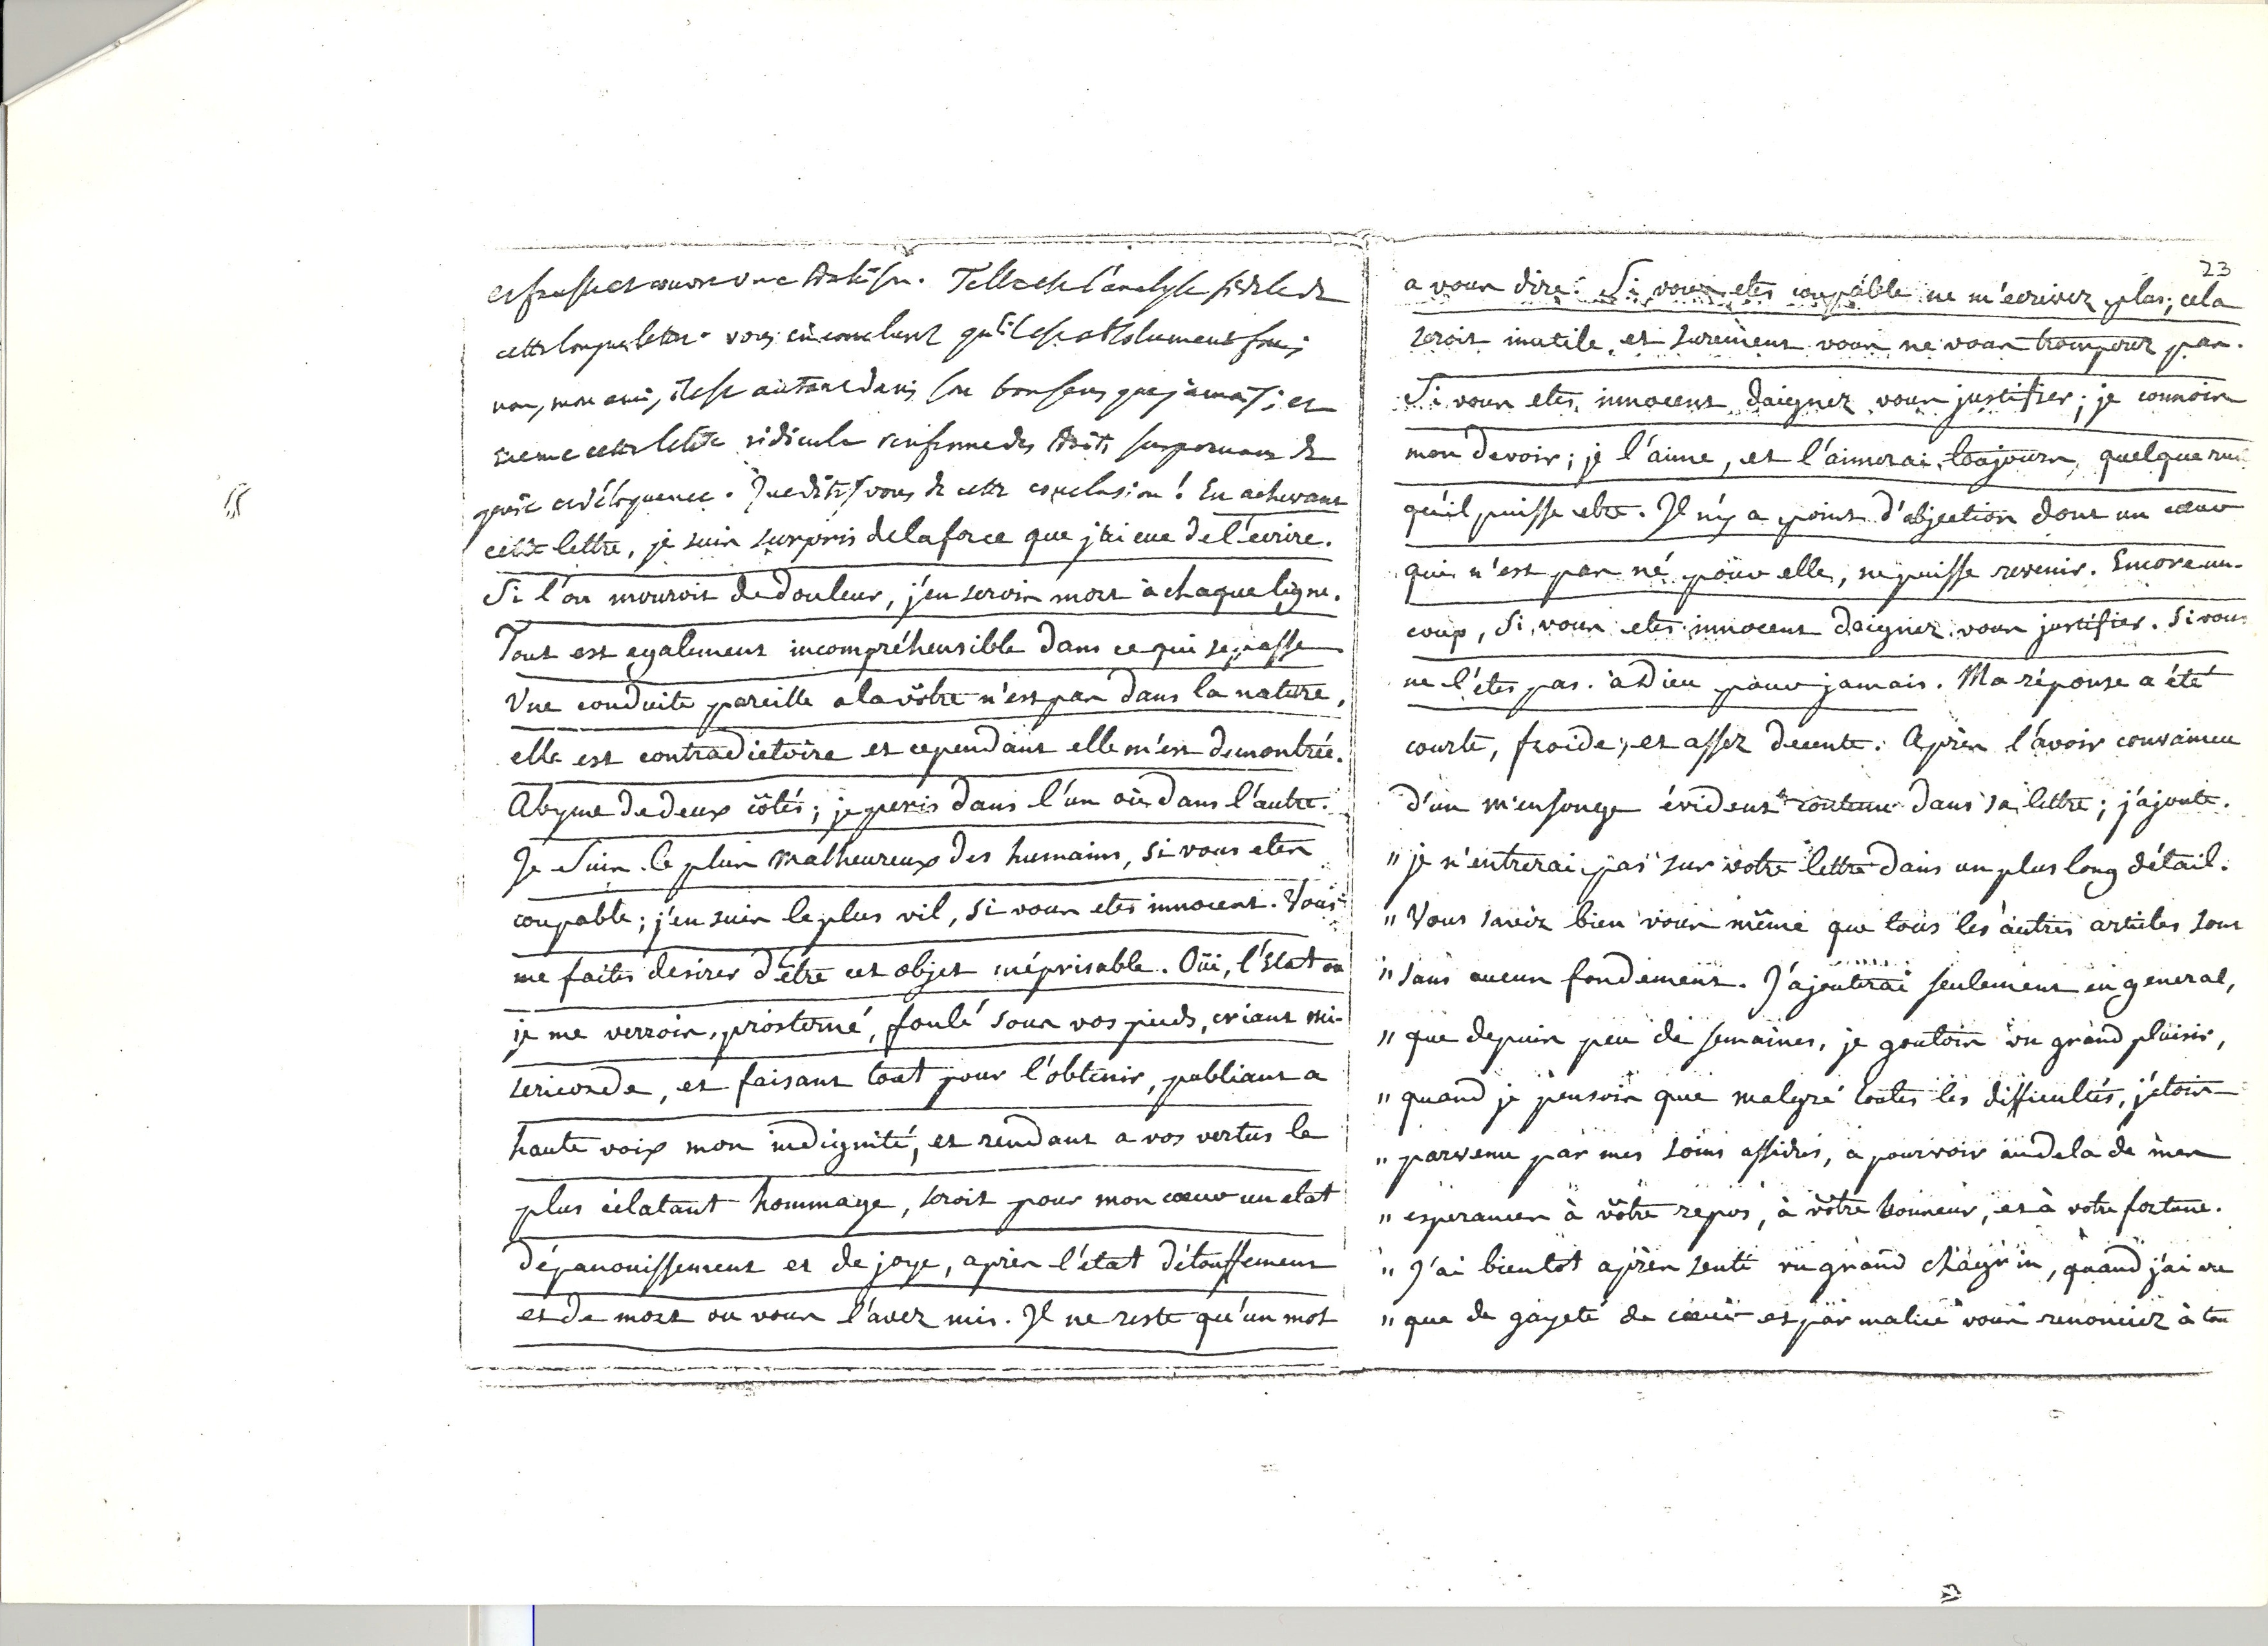 et fausse et couvre une trahison. Telle est l'analyse fidele de
cette longue lettre. vous en conclurez qu'il est absolument fou;
non, mon ami, il est autant dans son bon sens que jamais; et
meme cette lettre ridicule renferme des traits surprenans de
génie et d'éloquence. Que dites vous de cette conclusion! En achevant
cette lettre, je suis surpris de la force que j'ai eue de l'écrire.
Si l'on mouroit de douleur, j'en serois mort à chaque ligne.
Tout est egalement incompréhensible dans ce qui se passe
Une conduite pareille a la vôtre n'est pas dans la nature,
elle est contradictoire et cependant elle m'est demontrée.
Abyme de deux côtés; je peris dans l'un ou dans l'autre.
Je suis le plus malheureux des humains, si vous etes
coupable; j'en suis le plus vil, si vous etes innocent. Vous
me faites desirer d'être cet objet méprisable. Oüi, l'état ou
je me verrois, prosterné, foulé sous vos pieds, criant mi-
sericorde, et faisant tout pour l'obtenir, publiant a
haute voix mon indignité, et rendant a vos vertus le
plus éclatant hommage, seroit pour mon cœur un etat
d'épanouissement et de joye, après l'état d'étouffement
et de mort ou vous l'avez mis. Il ne reste qu'un mot
23
a vous dire: Si vous etes coupable ne m'ecrivez plus; cela
seroit inutile, et surement vous ne vous tromperez pas.
Si vous etes innocent daignez vous justifier; je connois
mon devoir; je l'aime, et l'aimerai toujours, quelque rude
qu'il puisse etre. Il n'y a point d'abjection dont un cœur
qui n'est pas né pour elle, ne puisse revenir. Encore un-
coup, si vous etes innocent daignez vous justifier. Si vous
ne l'étes pas. adieu pour jamais. Ma réponse a été
courte, froide, et assez decente. Après l'avoir convaincu
d'un mensonge évident contenu dans sa lettre; j'ajoute.
" je n'entrerai pas sur votre lettre dans un plus long détail.
" Vous savez bien vous même que tous les autres articles sont
" sans aucun fondement. J'ajouterai seulement en general,
" que depuis peu de semaines, je goutois un grand plaisir,
" quand je pensois que malgré toutes les difficultés, j'étois
" parvenu par mes soins assidus, a pourvoir au dela de mes
" esperances à vôtre repos, à vôtre honneur, et à votre fortune.
" J'ai bientot après senti un grand chagrin, quand j'ai vu
" que de gayeté de cœur et par malice vous renonciez à tou